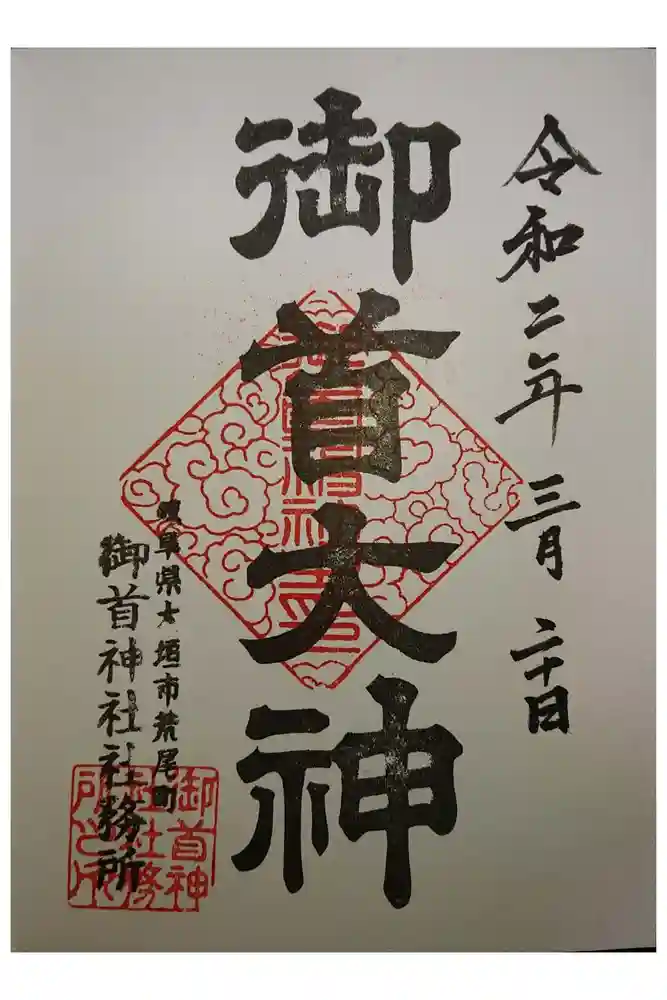 令和二年三月二十日
御首大神
岐阜県大垣市荒尾町
御首神社社務所
御首神社社務所之印